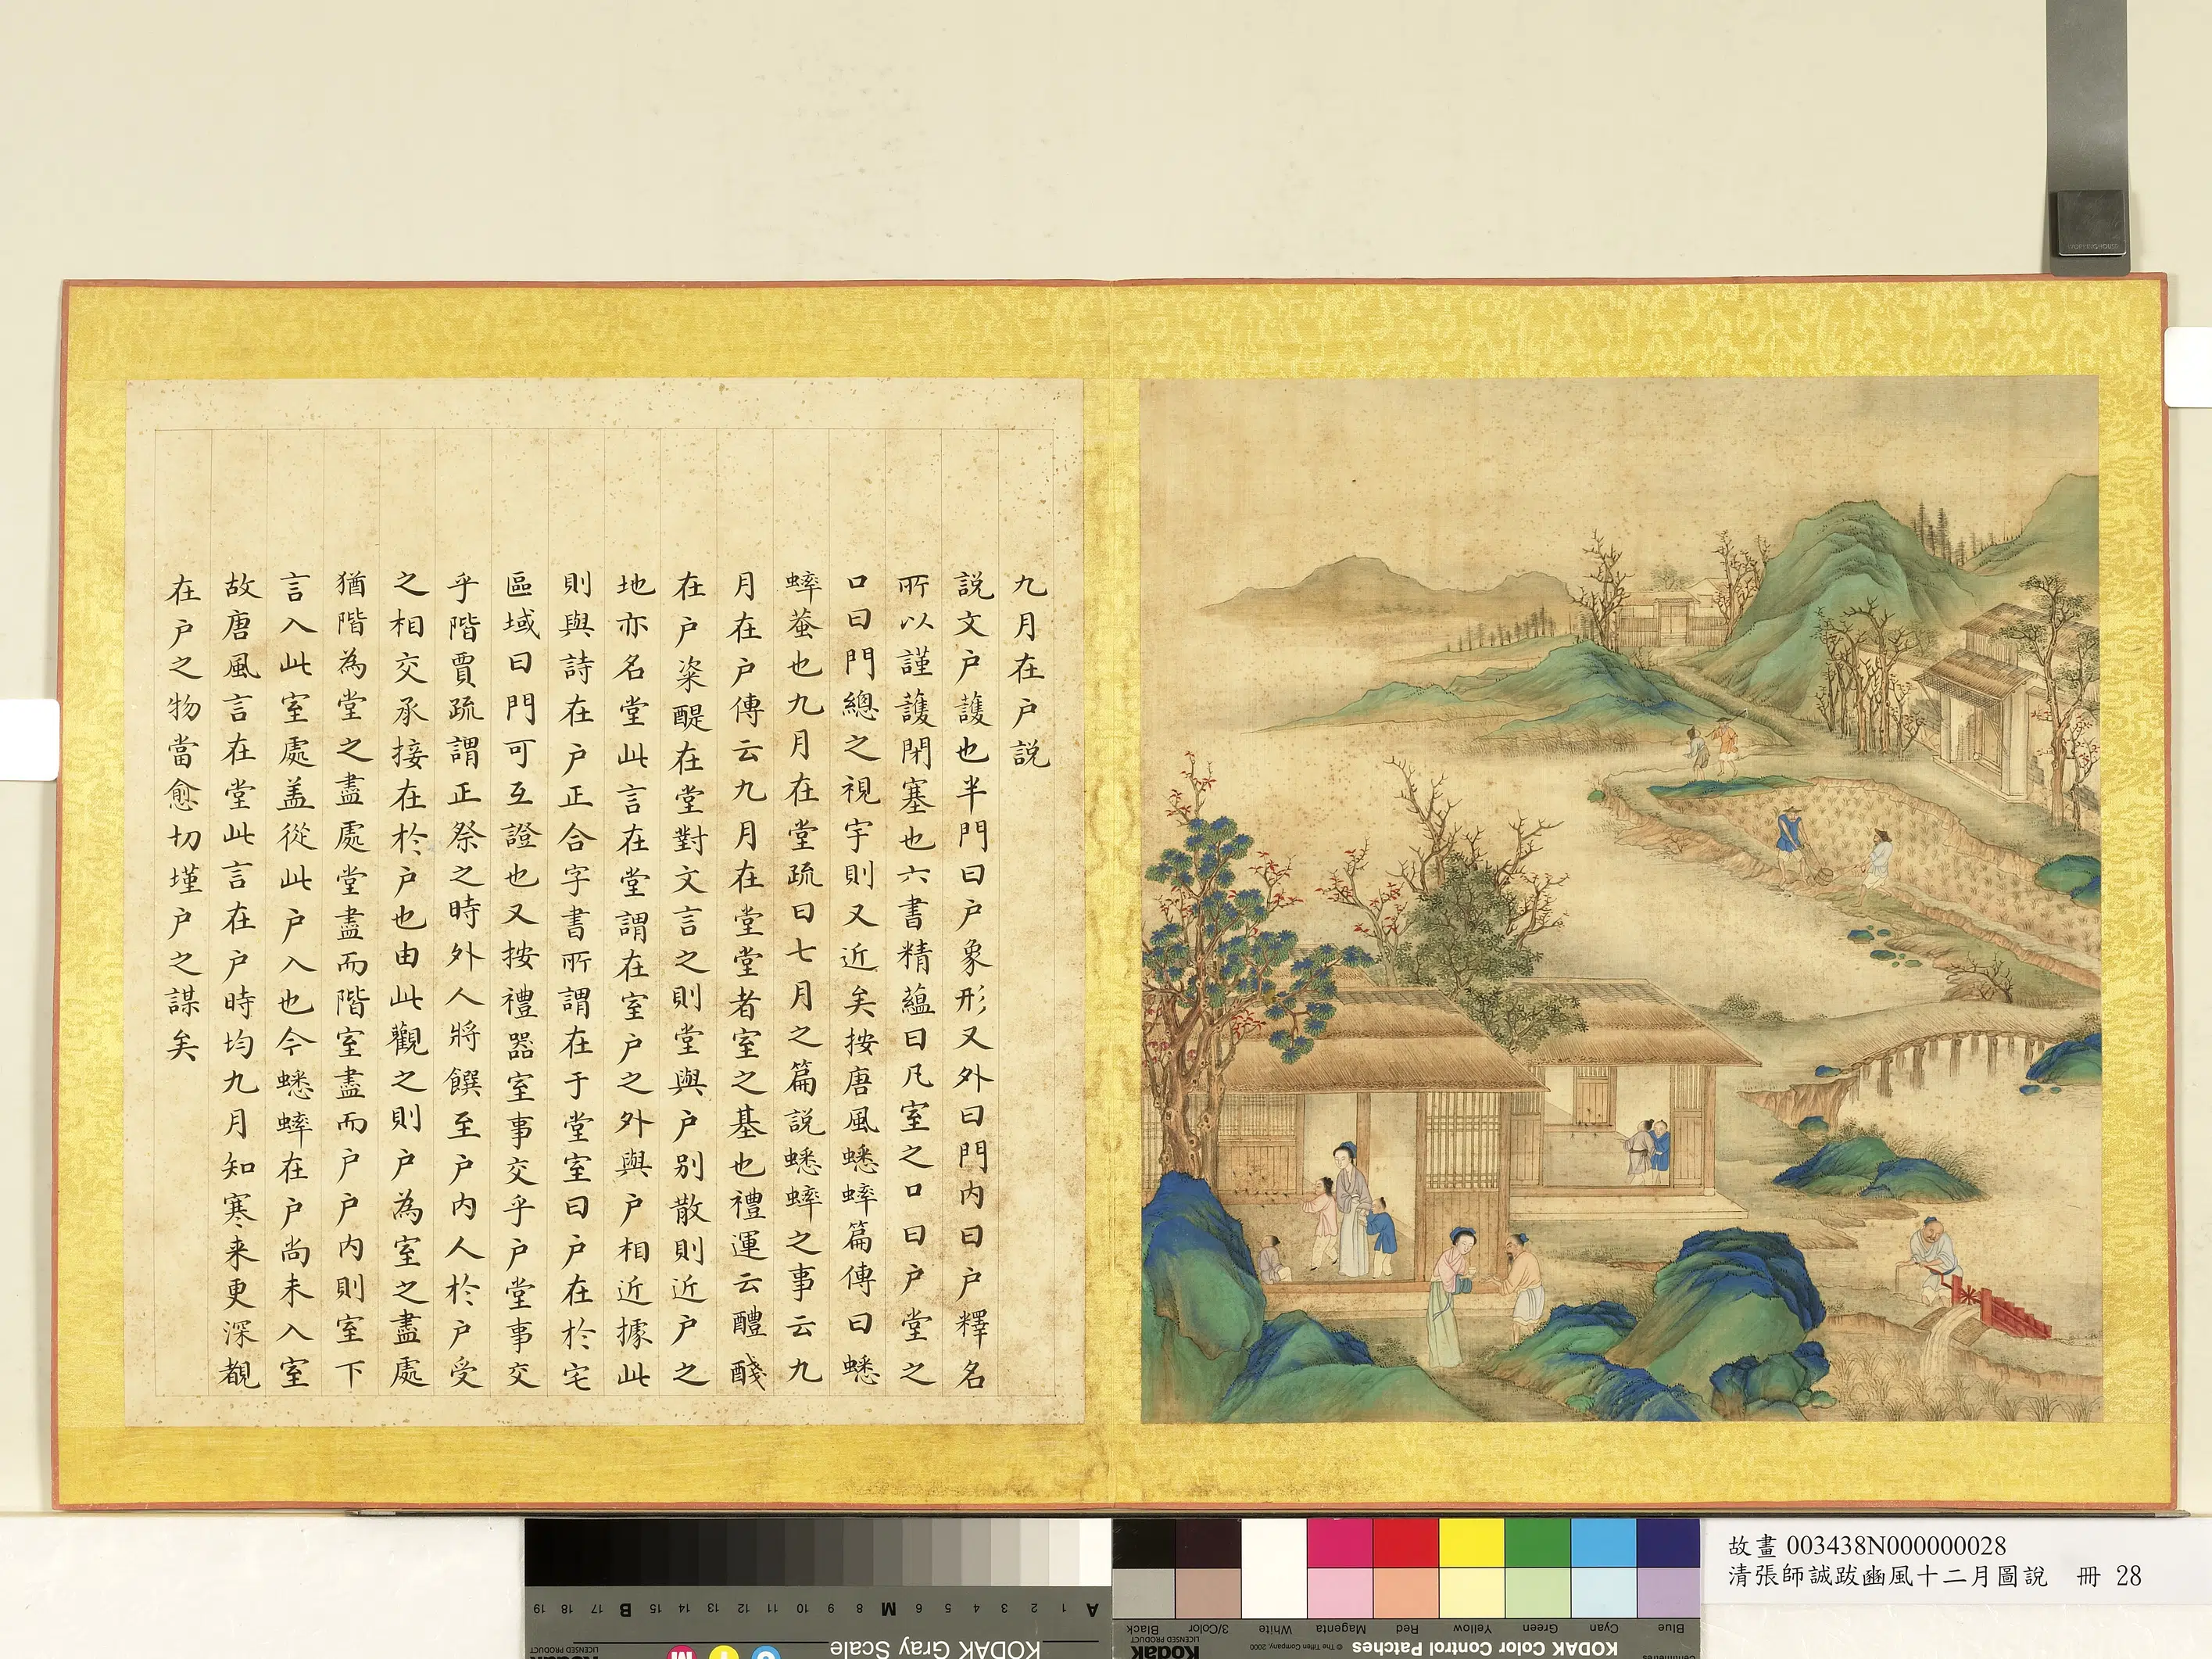 九月在户説
説文户護也半門曰户象形又外曰門内曰户釋名
所以謹護閉塞也六書精蘊曰凡室之口曰户堂之
口曰門總之視宇則又近矣按唐風蟋蟀篇傳曰蟋
蟀蛬也九月在堂疏曰七月之篇説蟋蟀之事云九
月在户傳云九月在堂堂者室之基也禮運云醴醆
在户粢醍在堂對文言之則堂與户别散則近户之
地亦名堂此言在堂謂在室户之外與户相近據此
則與詩在户正合字書所謂在于堂室曰户在於宅
區域曰門可互證也又按禮器室事交乎户堂事交
乎階賈疏謂正祭之時外人將饌至户内人於户受
之相交承接在於户也由此觀之則户為室之盡處
猶階為堂之盡處堂盡而階室盡而户户内則室下
言入此室處盖從此户入也今蟋蟀在户尚未入室
故唐風言在堂此言在户時均九月知寒来更深覩
在户之物當愈切墐户之謀矣
故畫 003438N000000028
清張師誠跋豳風十二月圖說 冊 28
KODAK Gray Scale
A 1 2 3 4 5 6 M 8 9 10 11 12 13 14 15 B 17 18 19
KODAK Color Control Patches
© The Tiffen Company, 2000
Kodak
LICENSED PRODUCT
Blue Cyan Green Yellow Red Magenta White 3/Color Black